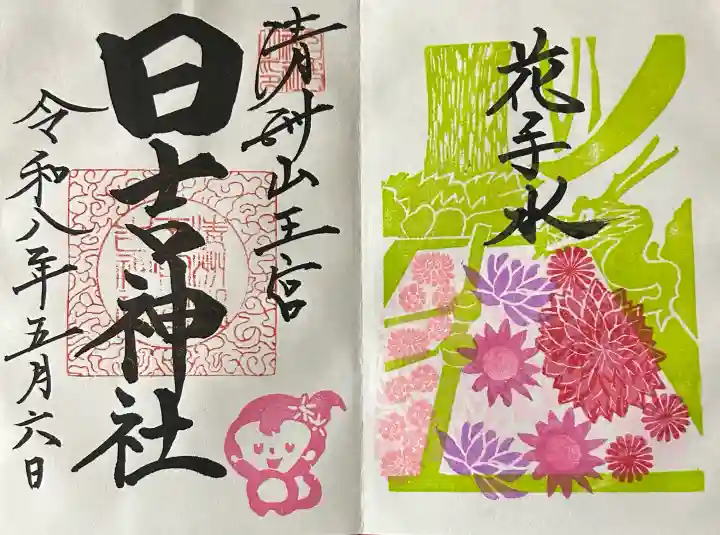 花手水
清洲山王宮
日吉神社
令和八年五月六日